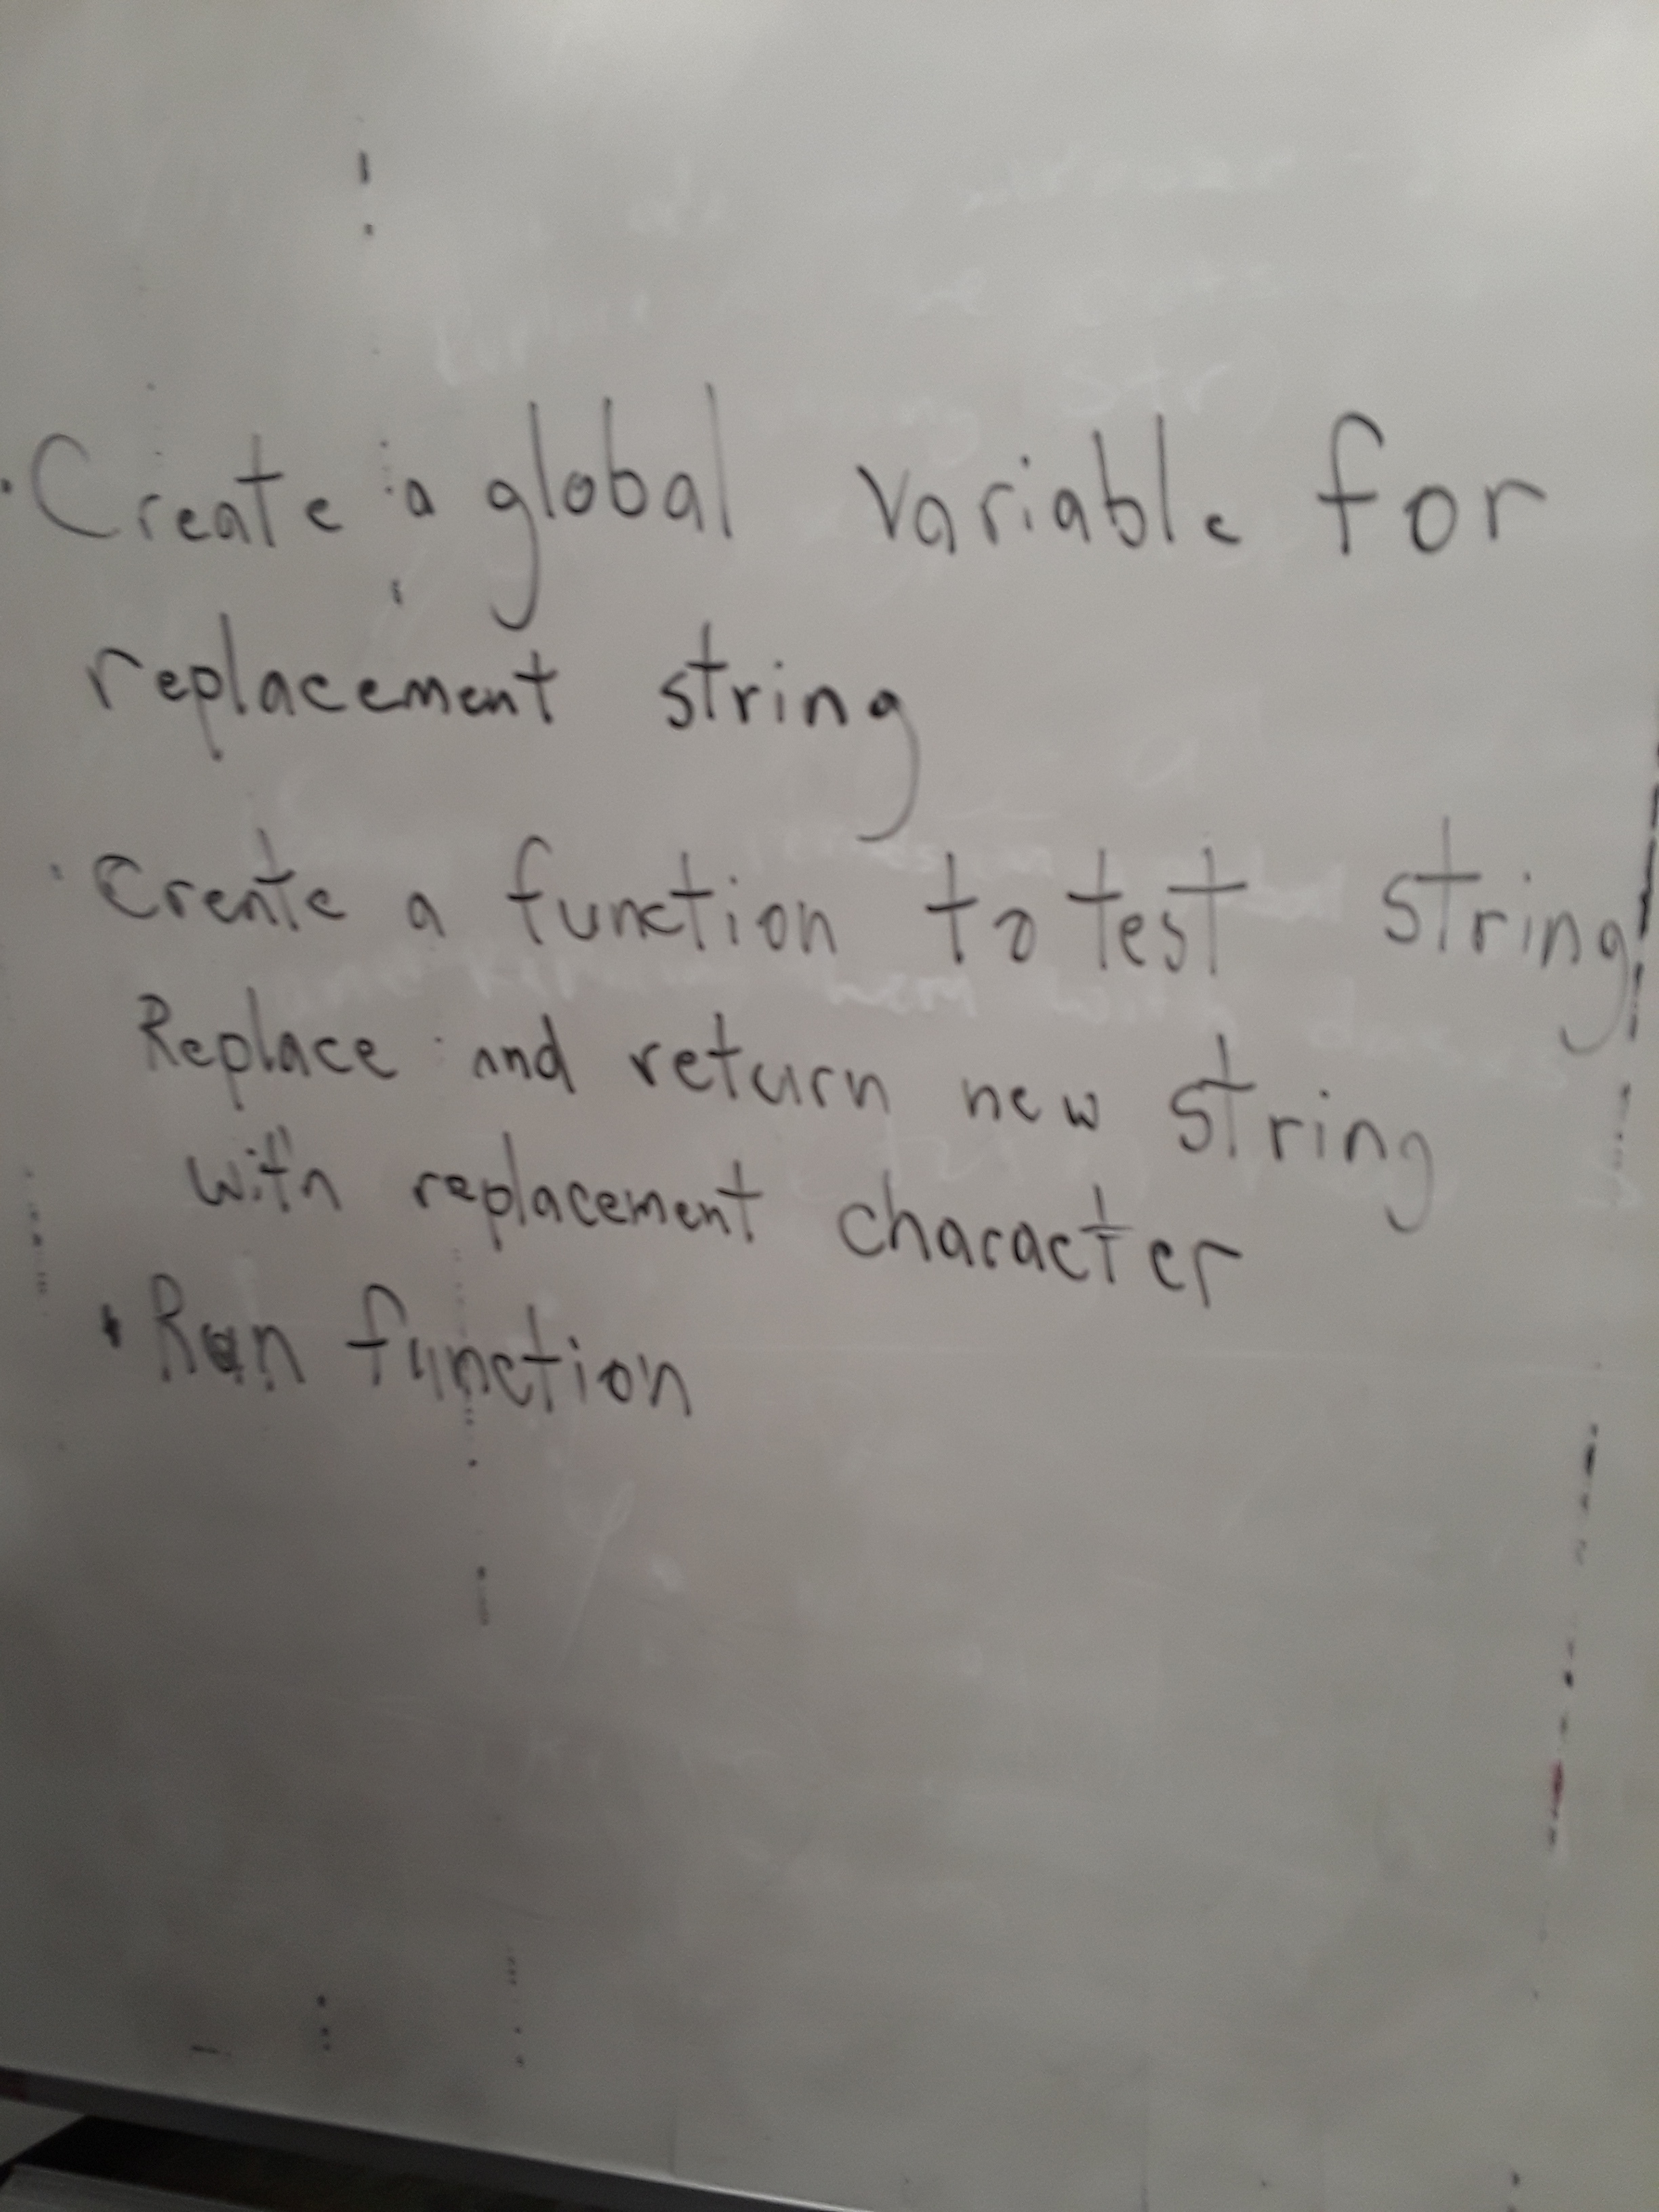 · Create a global variable for
replacement string
· Create a function to test string
Replace and return new string
with replacement character
· Run function